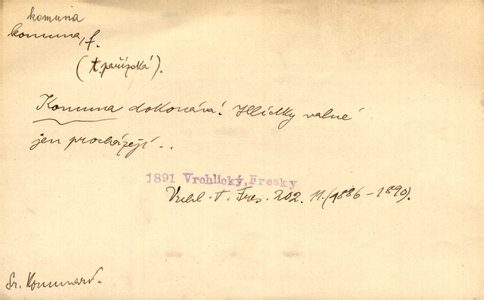 komuna
komuna, f.
(t. pařížská).
Komuna dokonává! Hlídky valné
jen procházejí..
1891 Vrchlický, Fresky
Vrchl. T. Fres. 202. 11. (1886–1890).
Sr. Kommard.